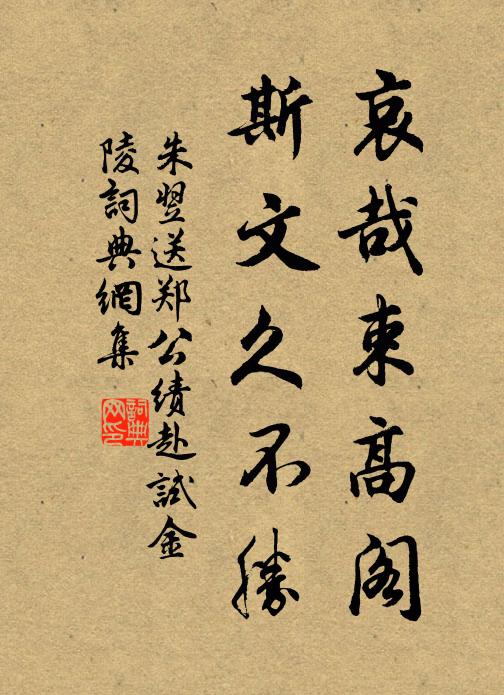 哀哉束高阁
斯文久不勝
朱翌送郑公绩赴試金
陵詞典網集
詞典网印